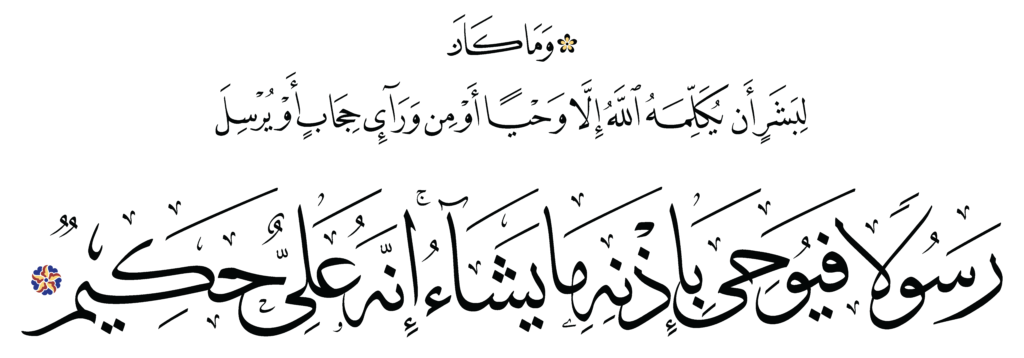 وَمَا كَانَ
لِبَشَرٍ أَن يُكَلِّمَهُ ٱللَّهُ إِلَّا وَحْيًا أَوْ مِن وَرَآئِ حِجَابٍ أَوْ يُرْسِلَ
رَسُولًا فَيُوحِىَ بِإِذْنِهِۦ مَا يَشَآءُ ۚ إِنَّهُۥ عَلِىٌّ حَكِيمٌ